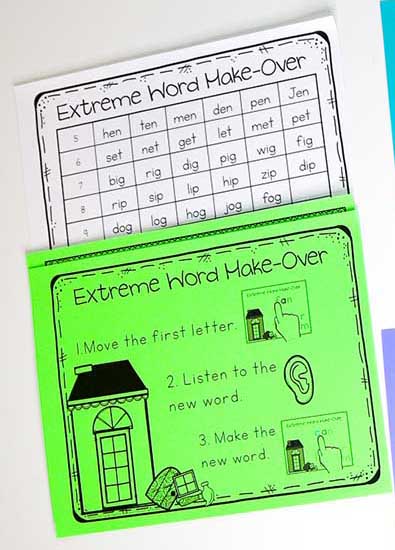 Extreme Word Make-Over
5 hen ten men den pen Jen
6 set net get let met pet
7 big rig dig pig wig fig
8 rip sip lip hip zip dip
9 dog log hog jog fog
Extreme Word Make-Over
1. Move the first letter.
2. Listen to the
new word.
3. Make the
new word.
Extreme Word Make-Over
can
r
m
Extreme Word Make-Over
can